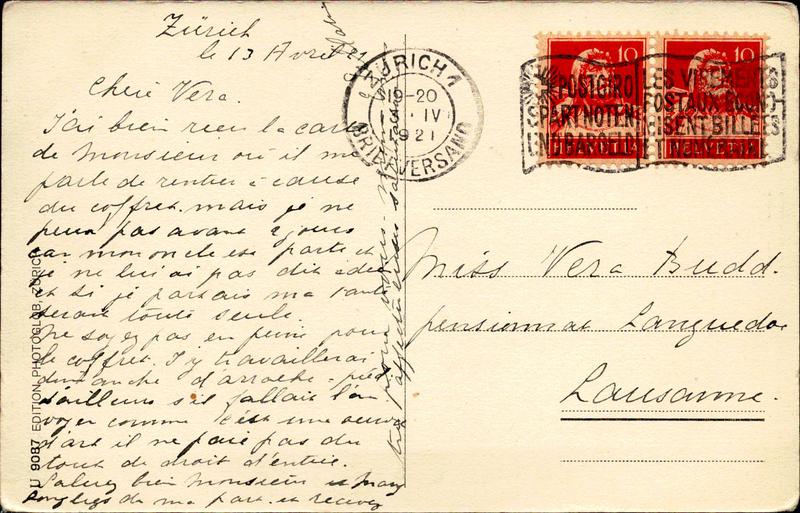 Zürich
le 13 Avril 21
Chère Vera.
J'ai bien reçu la carte
de Monsieur où il me
parle de rentrer à cause
du coffret. mais je ne
peux pas avant 2 jours
car mon oncle est parti et
je ne lui ai pas dit adieu
et si je partais ma tante
serait toute seule.
Ne soyez pas en peine pour
le coffret. J'y travaillerai
dimanche d'arrache-pied
d'ailleurs s'il fallait l'en
voyer comme c'est une œuvre
d'art il ne paie pas du
tout de droit d'entrée.
Saluez bien Monsieur et
de ma part. et recevez
pour vous
affectueuses
ZÜRICH 1
19-20
IV
1921
BRIEFVERSAND
10
10
POSTGIRO
SPART NOTEN
UND BARGELD
LES VIREMENTS
POSTAUX ÉCONO-
MISENT BILLETS
ET NUMÉRAIRE
HELVETIA
Miss Vera Budd.
pensionnat Languedoc
Lausanne.
U 9087 EDITION PHOTOGLOB, ZÜRICH